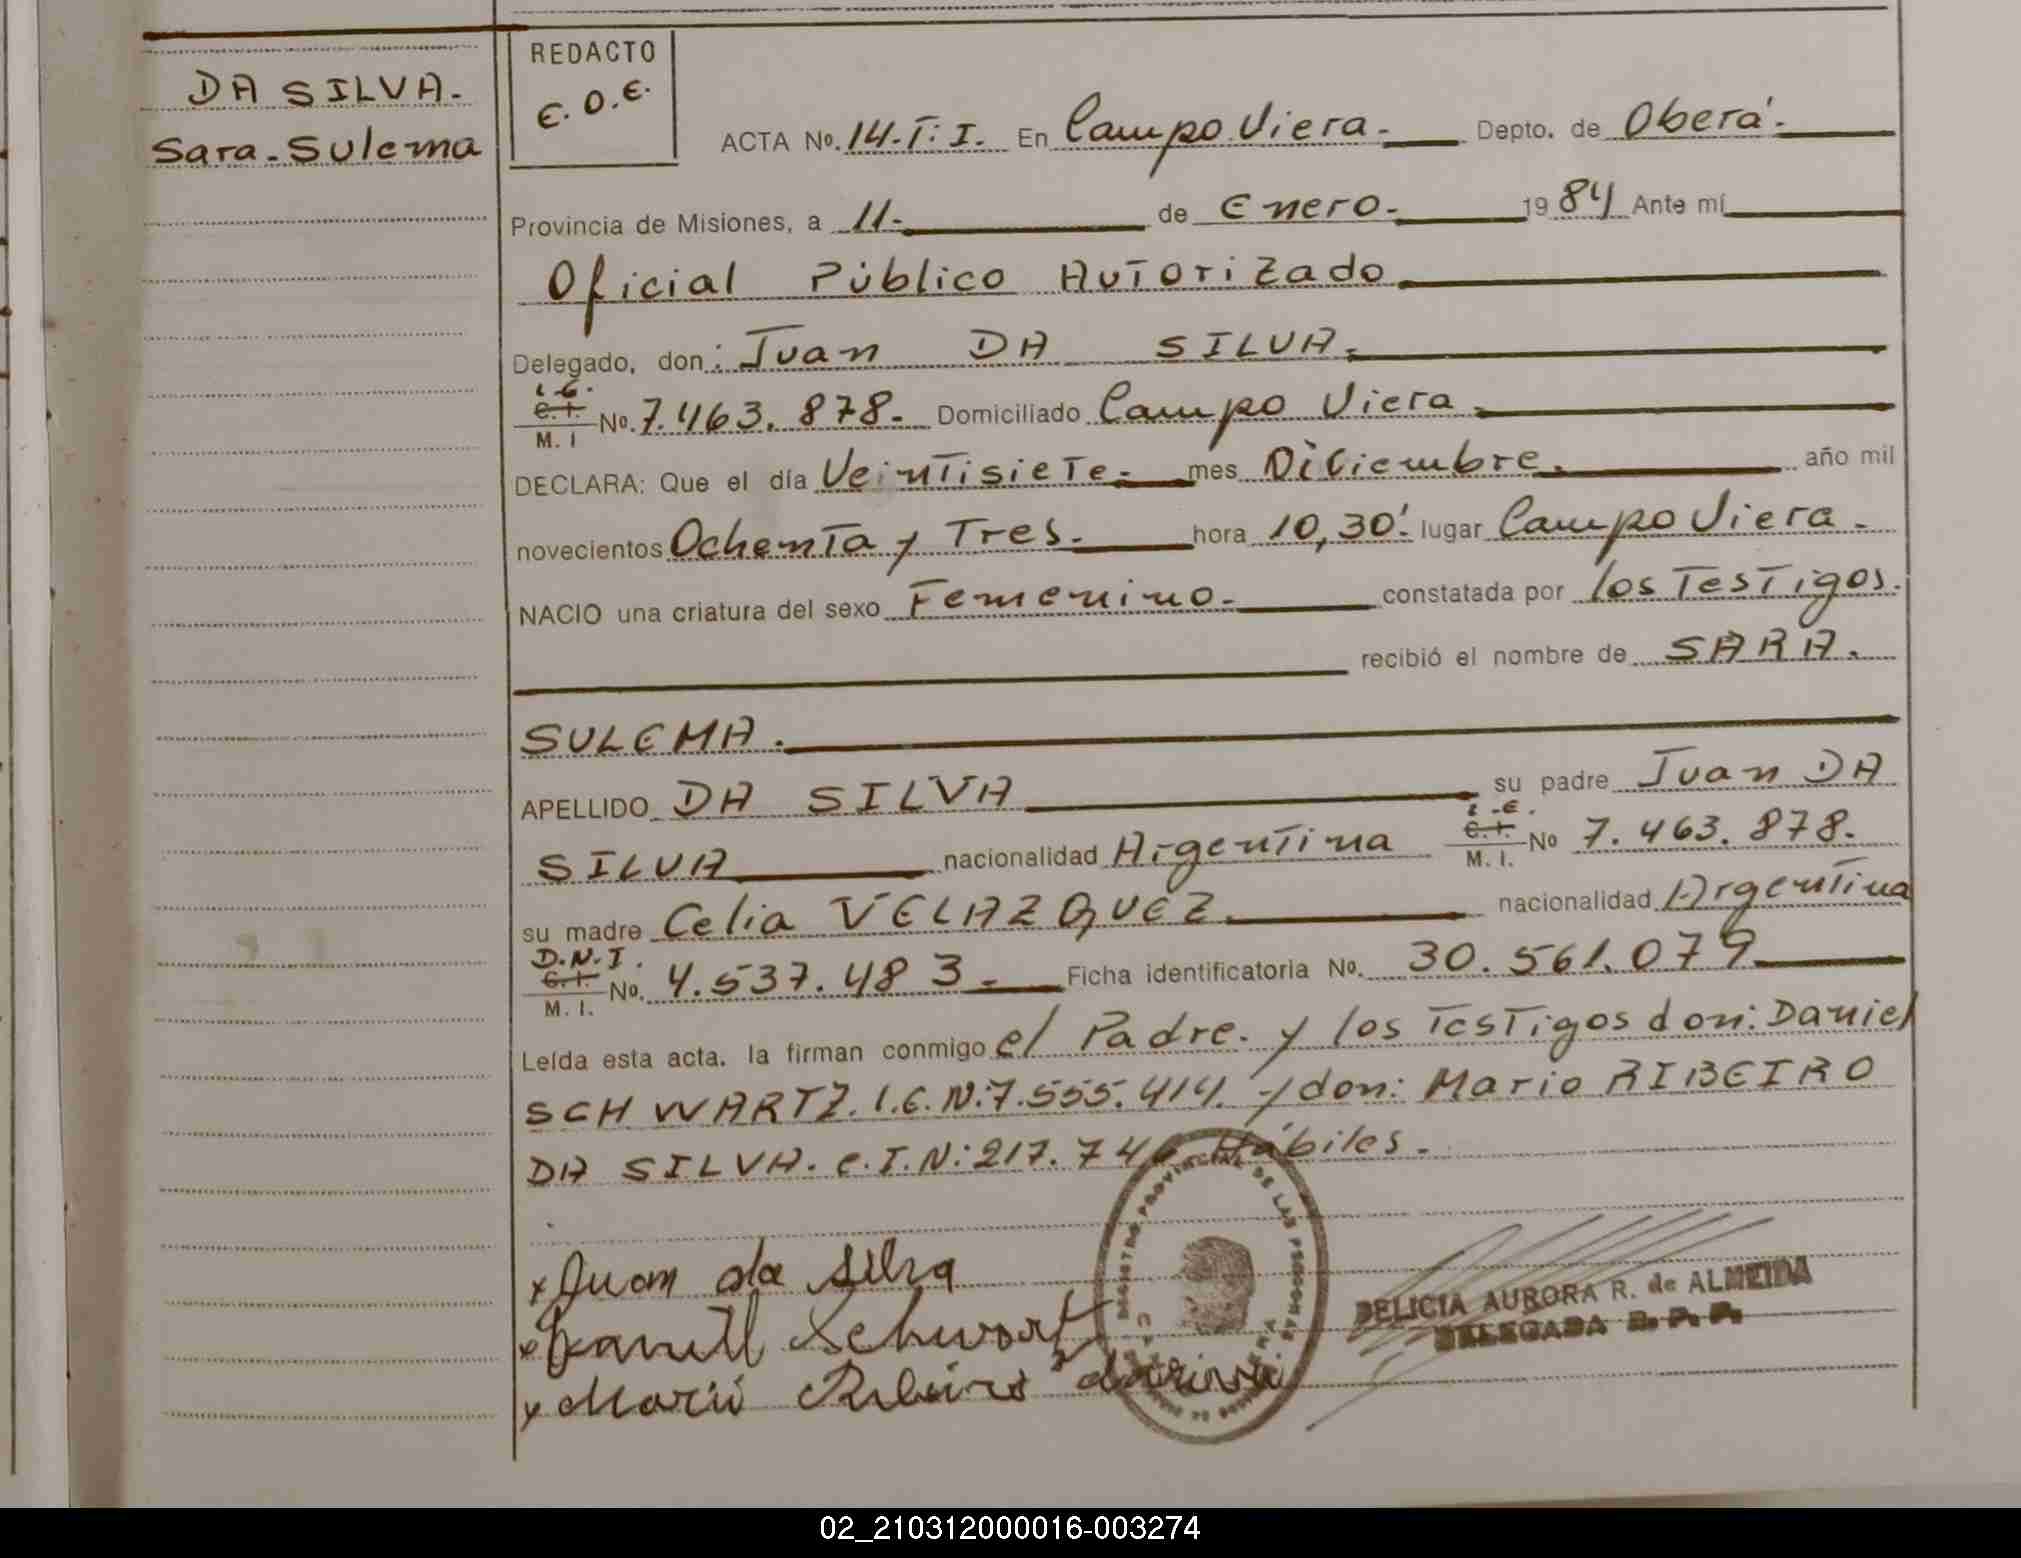 DA SILVA.
Sara. Sulema
REDACTO
E.O.E.
ACTA No. 14.T: I. En Campo Viera. Depto. de Oberá.
Provincia de Misiones, a 11. de Enero. 1984 Ante mí
Oficial Público Autorizado
Delegado, don: Juan DA SILVA.
L.E.
C.I.
M. I No. 7.463.878. Domiciliado Campo Viera
DECLARA: Que el día Veintisiete. mes Diciembre. año mil
novecientos Ochenta y Tres. hora 10,30'. lugar Campo Viera.
NACIO una criatura del sexo Femenino. constatada por los Testigos.
recibió el nombre de SARA.
SULEMA.
APELLIDO DA SILVA su padre Juan DA
L.E.
SILVA nacionalidad Argentina C.I. M. I. No 7.463.878.
su madre Celia VELAZQUEZ nacionalidad Argentina
D.N.I.
C.I. M. I. No. 4.537.483. Ficha identificatoria No. 30.561.079
Leída esta acta. la firman conmigo el Padre. y los Testigos don: Daniel
SCHWARTZ. L.E.N:7.555.414. y don: Mario RIBEIRO
DA SILVA. C.I.N:217.746 Hábiles.
x Juan da Silva
x Daniel Schwartz
x Mario Ribeiro da Silva
REGISTRO PROVINCIAL DE LAS PERSONAS
DELICIA AURORA R. de ALMEIDA
DELEGADA R. P. P.
02_210312000016-003274